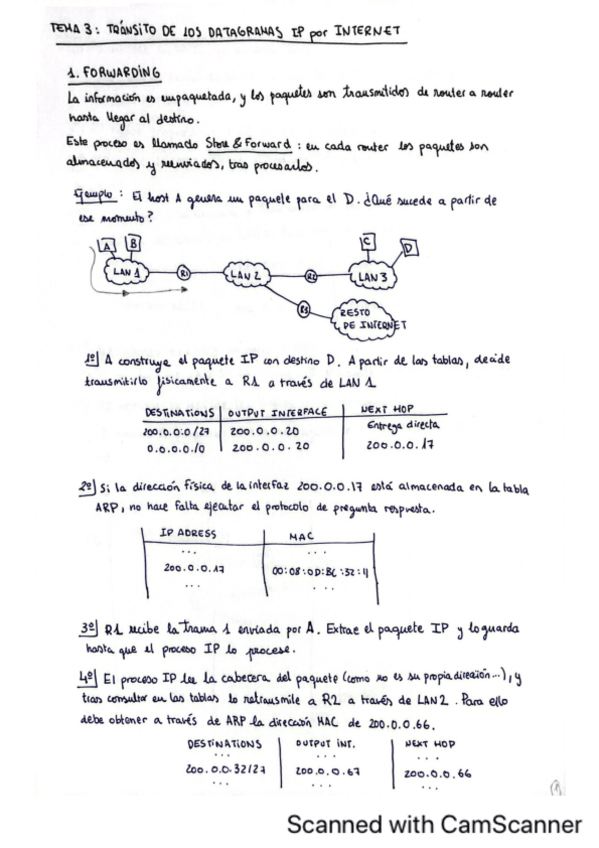 TEMA 3: TRÁNSITO DE LOS DATAGRAMAS IP por INTERNET
1. FORWARDING
La información es empaquetada, y los paquetes son transmitidos de router a router
hasta llegar al destino.
Este proceso es llamado Store & Forward: en cada router los paquetes son
almacenados y reenviados, tras procesarlos.
Ejemplo: El host A genera un paquete para el D. ¿Qué sucede a partir de
ese momento?
A B C D
LAN 1 R1 LAN 2 R2 LAN 3
R3 RESTO
DE INTERNET
1º] A construye el paquete IP con destino D. A partir de las tablas, decide
transmitirlo físicamente a R1 a través de LAN 1
DESTINATIONS OUTPUT INTERFACE NEXT HOP
200.0.0.0/27 200.0.0.20 Entrega directa
0.0.0.0/0 200.0.0.20 200.0.0.17
2º] Si la dirección física de la interfaz 200.0.0.17 está almacenada en la tabla
ARP, no hace falta ejecutar el protocolo de pregunta respuesta.
IP ADRESS MAC
... ...
200.0.0.17 00:08:0D:BC:52:
... ...
3º] R1 recibe la trama 1 enviada por A. Extrae el paquete IP y lo guarda
hasta que el proceso IP lo procese.
4º] El proceso IP lee la cabecera del paquete (como no es su propia dirección...), y
tras consultar en las tablas lo retransmite a R2 a través de LAN2. Para ello
debe obtener a través de ARP la dirección MAC de 200.0.0.66.
DESTINATIONS OUTPUT INT. NEXT HOP
... ... ...
200.0.0.32/27 200.0.0.67 200.0.0.66
... ... ...
1
Scanned with CamScanner